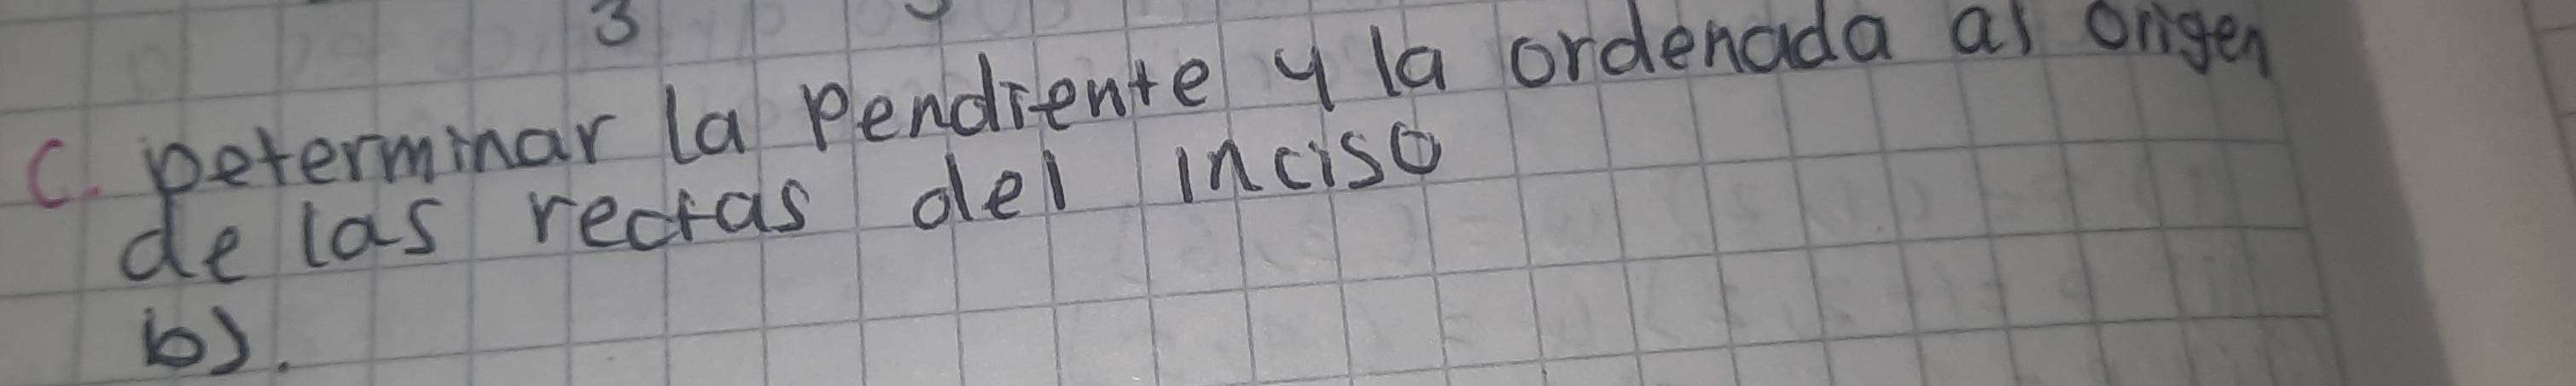 3
C. Determinar la pendiente y la ordenada al origen
de las rectas del inciso
b).